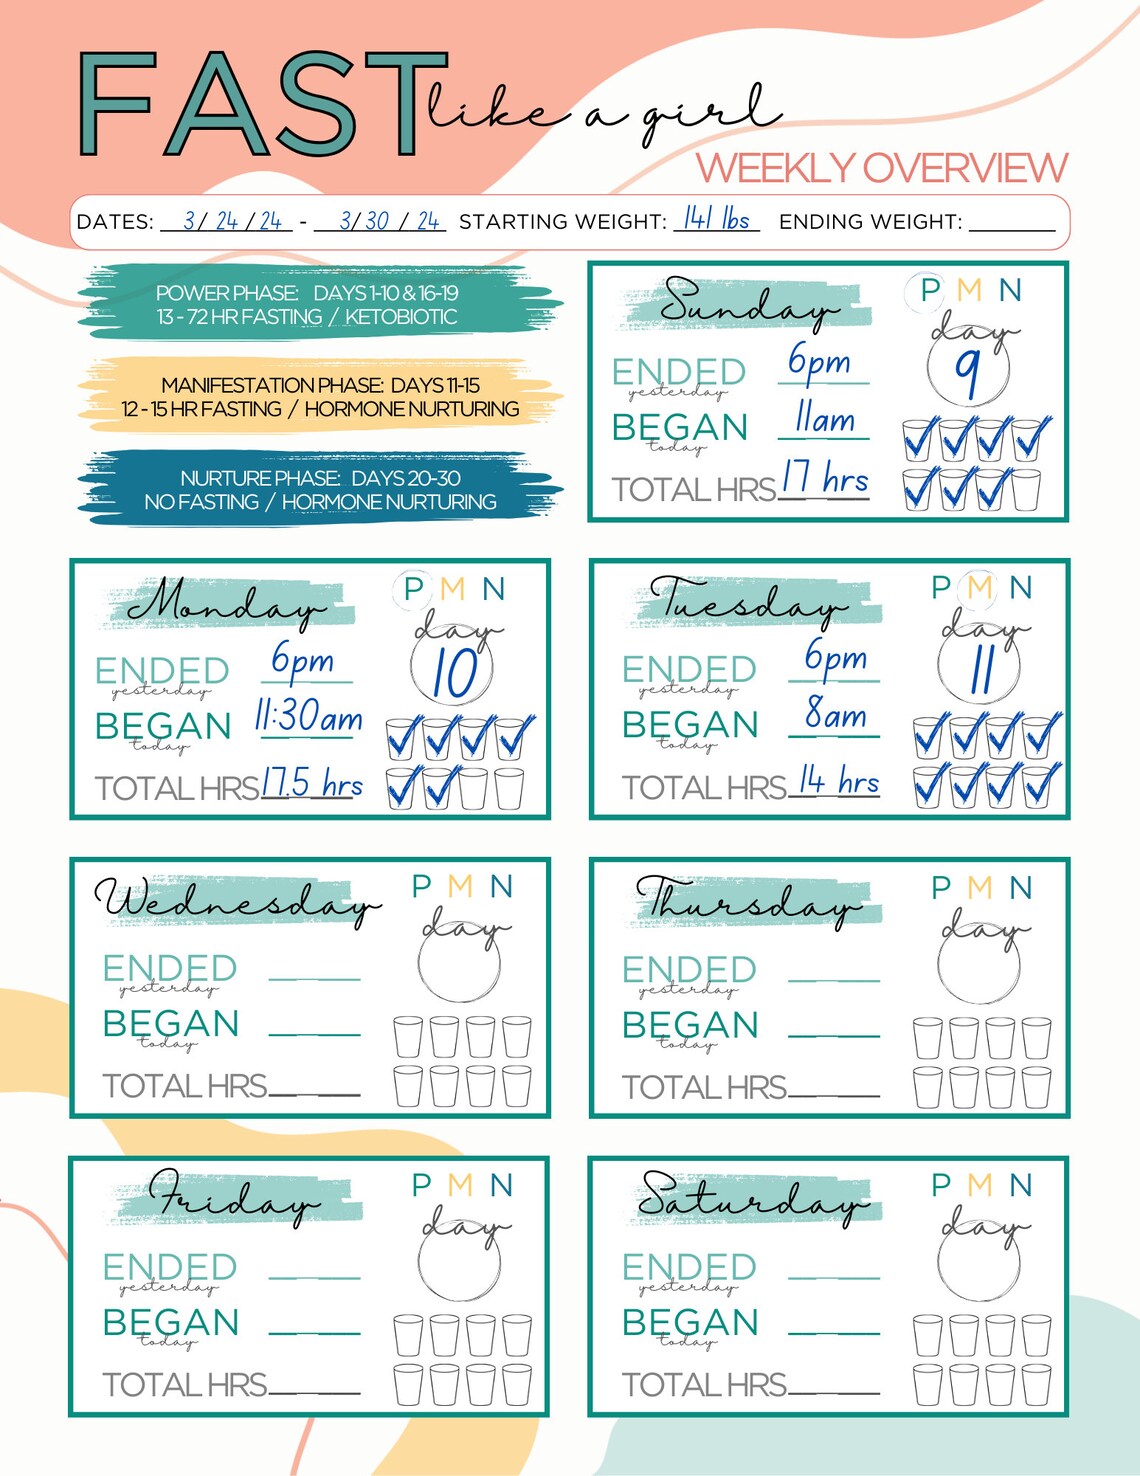 FAST like a girl
WEEKLY OVERVIEW
DATES: 3/ 24 / 24 - 3/ 30 / 24 STARTING WEIGHT: 141 lbs ENDING WEIGHT:
POWER PHASE: DAYS 1-10 & 16-19
13 - 72 HR FASTING / KETOBIOTIC
MANIFESTATION PHASE: DAYS 11-15
12 - 15 HR FASTING / HORMONE NURTURING
NURTURE PHASE: DAYS 20-30
NO FASTING / HORMONE NURTURING
Sunday
P M N
day
9
ENDED 6pm
yesterday
BEGAN 11am
today
TOTAL HRS 17 hrs
Monday
P M N
day
10
ENDED 6pm
yesterday
BEGAN 11:30am
today
TOTAL HRS 17.5 hrs
Tuesday
P M N
day
11
ENDED 6pm
yesterday
BEGAN 8am
today
TOTAL HRS 14 hrs
Wednesday
P M N
day
ENDED
yesterday
BEGAN
today
TOTAL HRS
Thursday
P M N
day
ENDED
yesterday
BEGAN
today
TOTAL HRS
Friday
P M N
day
ENDED
yesterday
BEGAN
today
TOTAL HRS
Saturday
P M N
day
ENDED
yesterday
BEGAN
today
TOTAL HRS